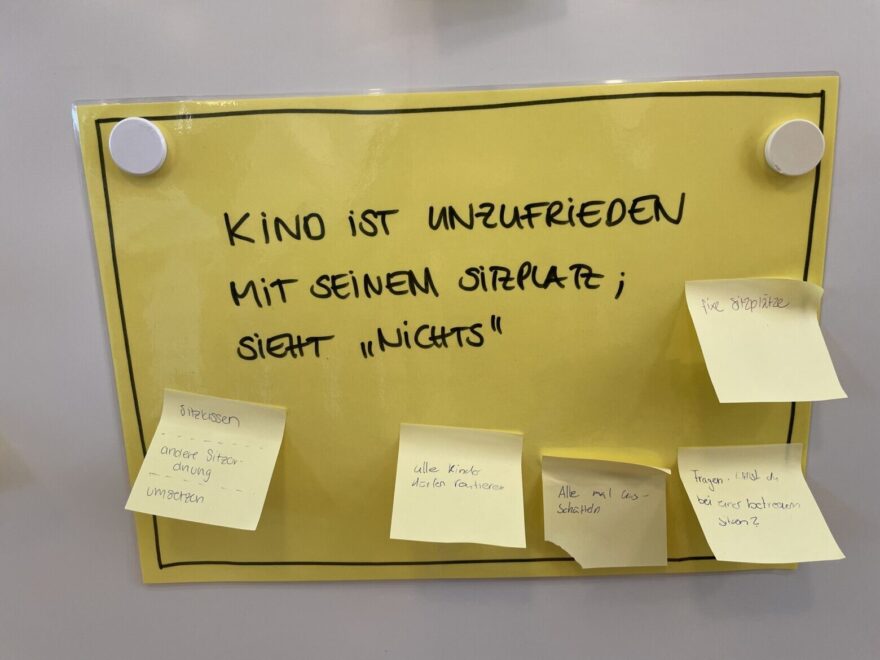 KIND IST UNZUFRIEDEN
MIT SEINEM SITZPLATZ;
SIEHT „NICHTS“
fixe Sitzplätze
Sitzkissen
andere Sitzor-
dnung
umsetzen
alle Kinder
dürfen rautieren
Alle mal aus-
schütteln
Fragen: willst du
bei einer betreuerin
sitzen?